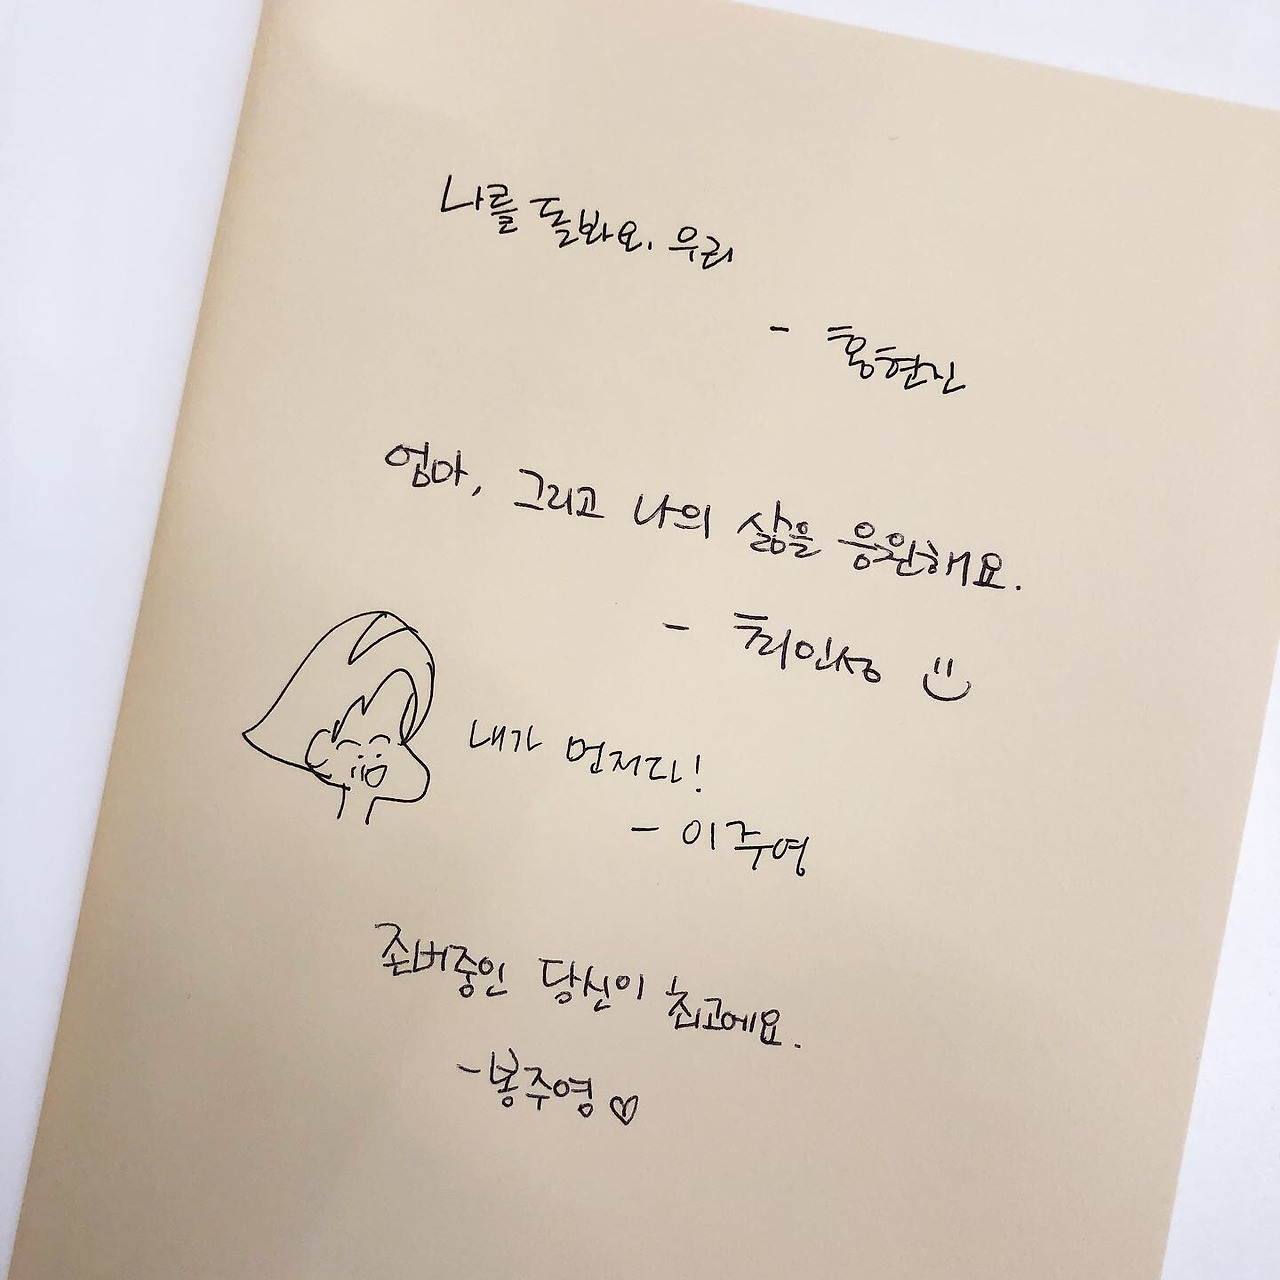 나를 돌봐요. 우리
- 홍현진
엄마, 그리고 나의 삶을 응원해요.
- 최인성
내가 먼저다!
- 이주영
존버중인 당신이 최고에요.
- 봉주영 ♡